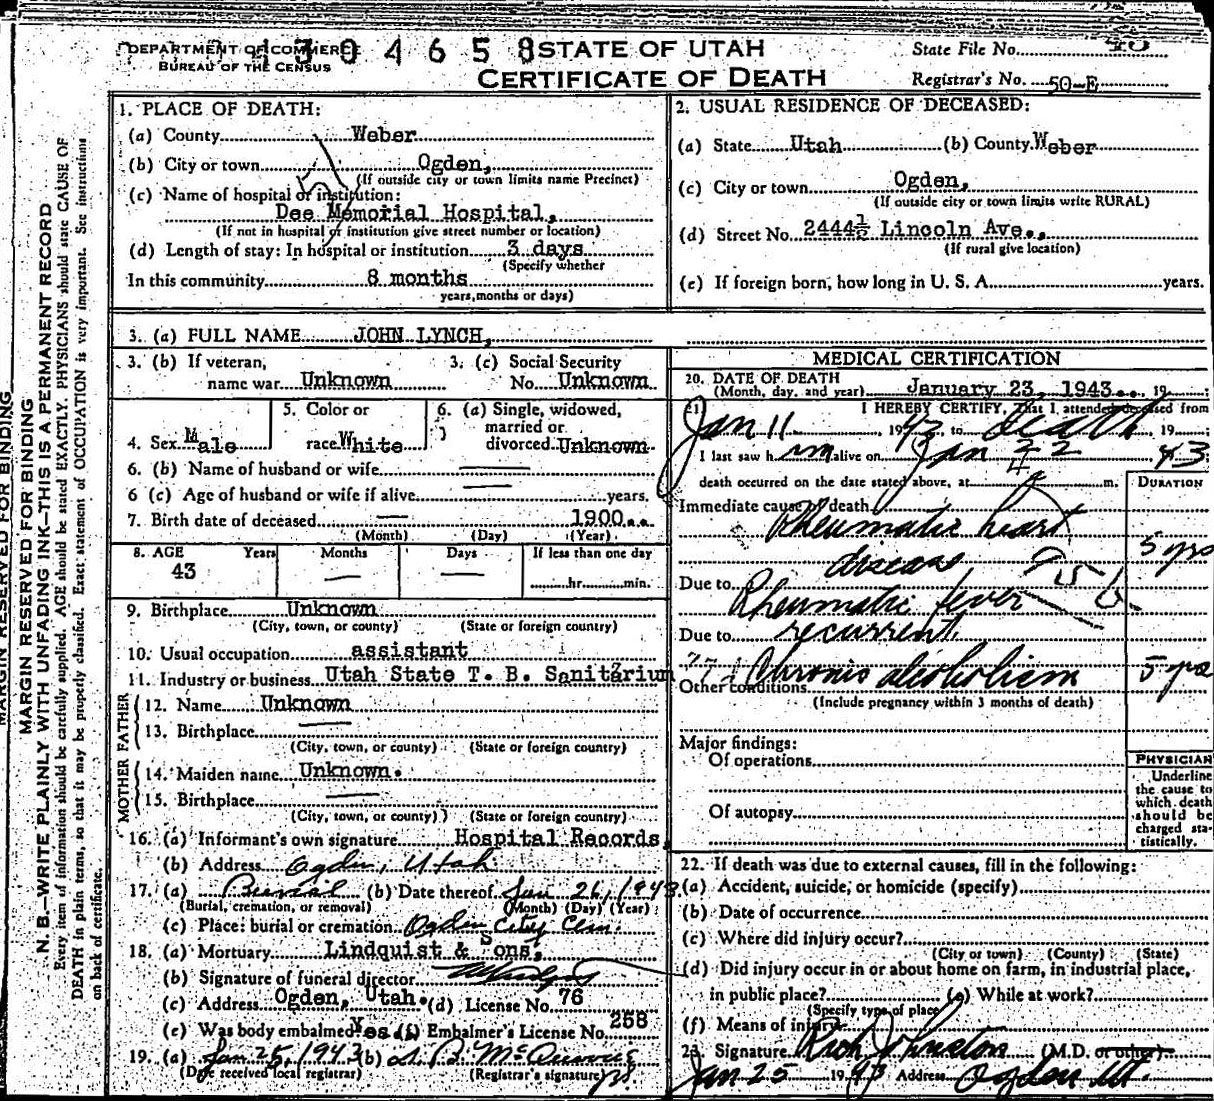 DEPARTMENT OF COMMERCE
BUREAU OF THE CENSUS
STATE OF UTAH
CERTIFICATE OF DEATH
State File No. 40
Registrar's No. 50-E
1. PLACE OF DEATH:
(a) County Weber
(b) City or town Ogden,
(If outside city or town limits name Precinct)
(c) Name of hospital or institution:
Dee Memorial Hospital,
(If not in hospital or institution give street number or location)
(d) Length of stay: In hospital or institution 3 days
(Specify whether
In this community 8 months
years, months or days)
2. USUAL RESIDENCE OF DECEASED:
(a) State Utah (b) County Weber
(c) City or town Ogden,
(If outside city or town limits write RURAL)
(d) Street No. 2444½ Lincoln Ave.,
(If rural give location)
(e) If foreign born, how long in U. S. A. years.
3. (a) FULL NAME JOHN LYNCH,
3. (b) If veteran, name war Unknown
3. (c) Social Security No. Unknown
4. Sex Male
5. Color or race White
6. (a) Single, widowed, married or divorced Unknown
6. (b) Name of husband or wife
6 (c) Age of husband or wife if alive years.
7. Birth date of deceased 1900..
(Month) (Day) (Year)
8. AGE Years Months Days If less than one day
43 hr. min.
9. Birthplace Unknown
(City, town, or county) (State or foreign country)
10. Usual occupation assistant
11. Industry or business Utah State T. B. Sanitarium
FATHER
12. Name Unknown
13. Birthplace
(City, town, or county) (State or foreign country)
MOTHER
14. Maiden name Unknown.
15. Birthplace
(City, town, or county) (State or foreign country)
16. (a) Informant's own signature Hospital Records,
(b) Address Ogden, Utah
17. (a) Burial (b) Date thereof Jan 26, 1943
(Burial, cremation, or removal) (Month) (Day) (Year)
(c) Place: burial or cremation Ogden City Cem.
18. (a) Mortuary Lindquist & Sons,
(b) Signature of funeral director
(c) Address Ogden, Utah. (d) License No. 76
(e) Was body embalmed Yes (f) Embalmer's License No. 258
19. (a) Jan 25, 1943 (b)
(Date received local registrar) (Registrar's signature)
MEDICAL CERTIFICATION
20. DATE OF DEATH
(Month, day, and year) January 23, 1943.. 19
21. I HEREBY CERTIFY, That I attended deceased from
Jan 11 1943 to death 19
I last saw him alive on Jan 22, 43
death occurred on the date stated above, at m.
DURATION
Immediate cause of death
Rheumatic heart disease 5 yrs
Due to Rheumatic fever
Due to recurrent.
Chronic alcoholism 5 yrs
Other conditions
(Include pregnancy within 3 months of death)
Major findings:
Of operations
Of autopsy
PHYSICIAN
Underline
the cause to
which death
should be
charged sta-
tistically.
22. If death was due to external causes, fill in the following:
(a) Accident, suicide, or homicide (specify)
(b) Date of occurrence
(c) Where did injury occur?
(City or town) (County) (State)
(d) Did injury occur in or about home on farm, in industrial place,
in public place? (e) While at work?
(Specify type of place
(f) Means of injury
23. Signature Rich Johnston (M.D. or other)
Jan 25 1943 Address Ogden Ut.
MARGIN RESERVED FOR BINDING
MARGIN RESERVED FOR BINDING
N. B.—WRITE PLAINLY WITH UNFADING INK—THIS IS A PERMANENT RECORD
Every item of information should be carefully supplied. AGE should be stated EXACTLY. PHYSICIANS should state CAUSE OF
DEATH in plain terms, so that it may be properly classified. Exact statement of OCCUPATION is very important. See instructions
on back of certificate.